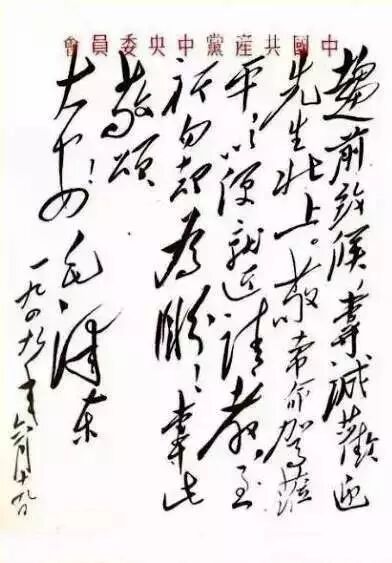 中國共產黨中央委員會
趨前致候,專誠歡迎
先生北上。敬希命駕蒞
平,以便就近請教,至
祈勿却為盼!專此
敬頌
大安!毛澤東
一九四九年六月十九日